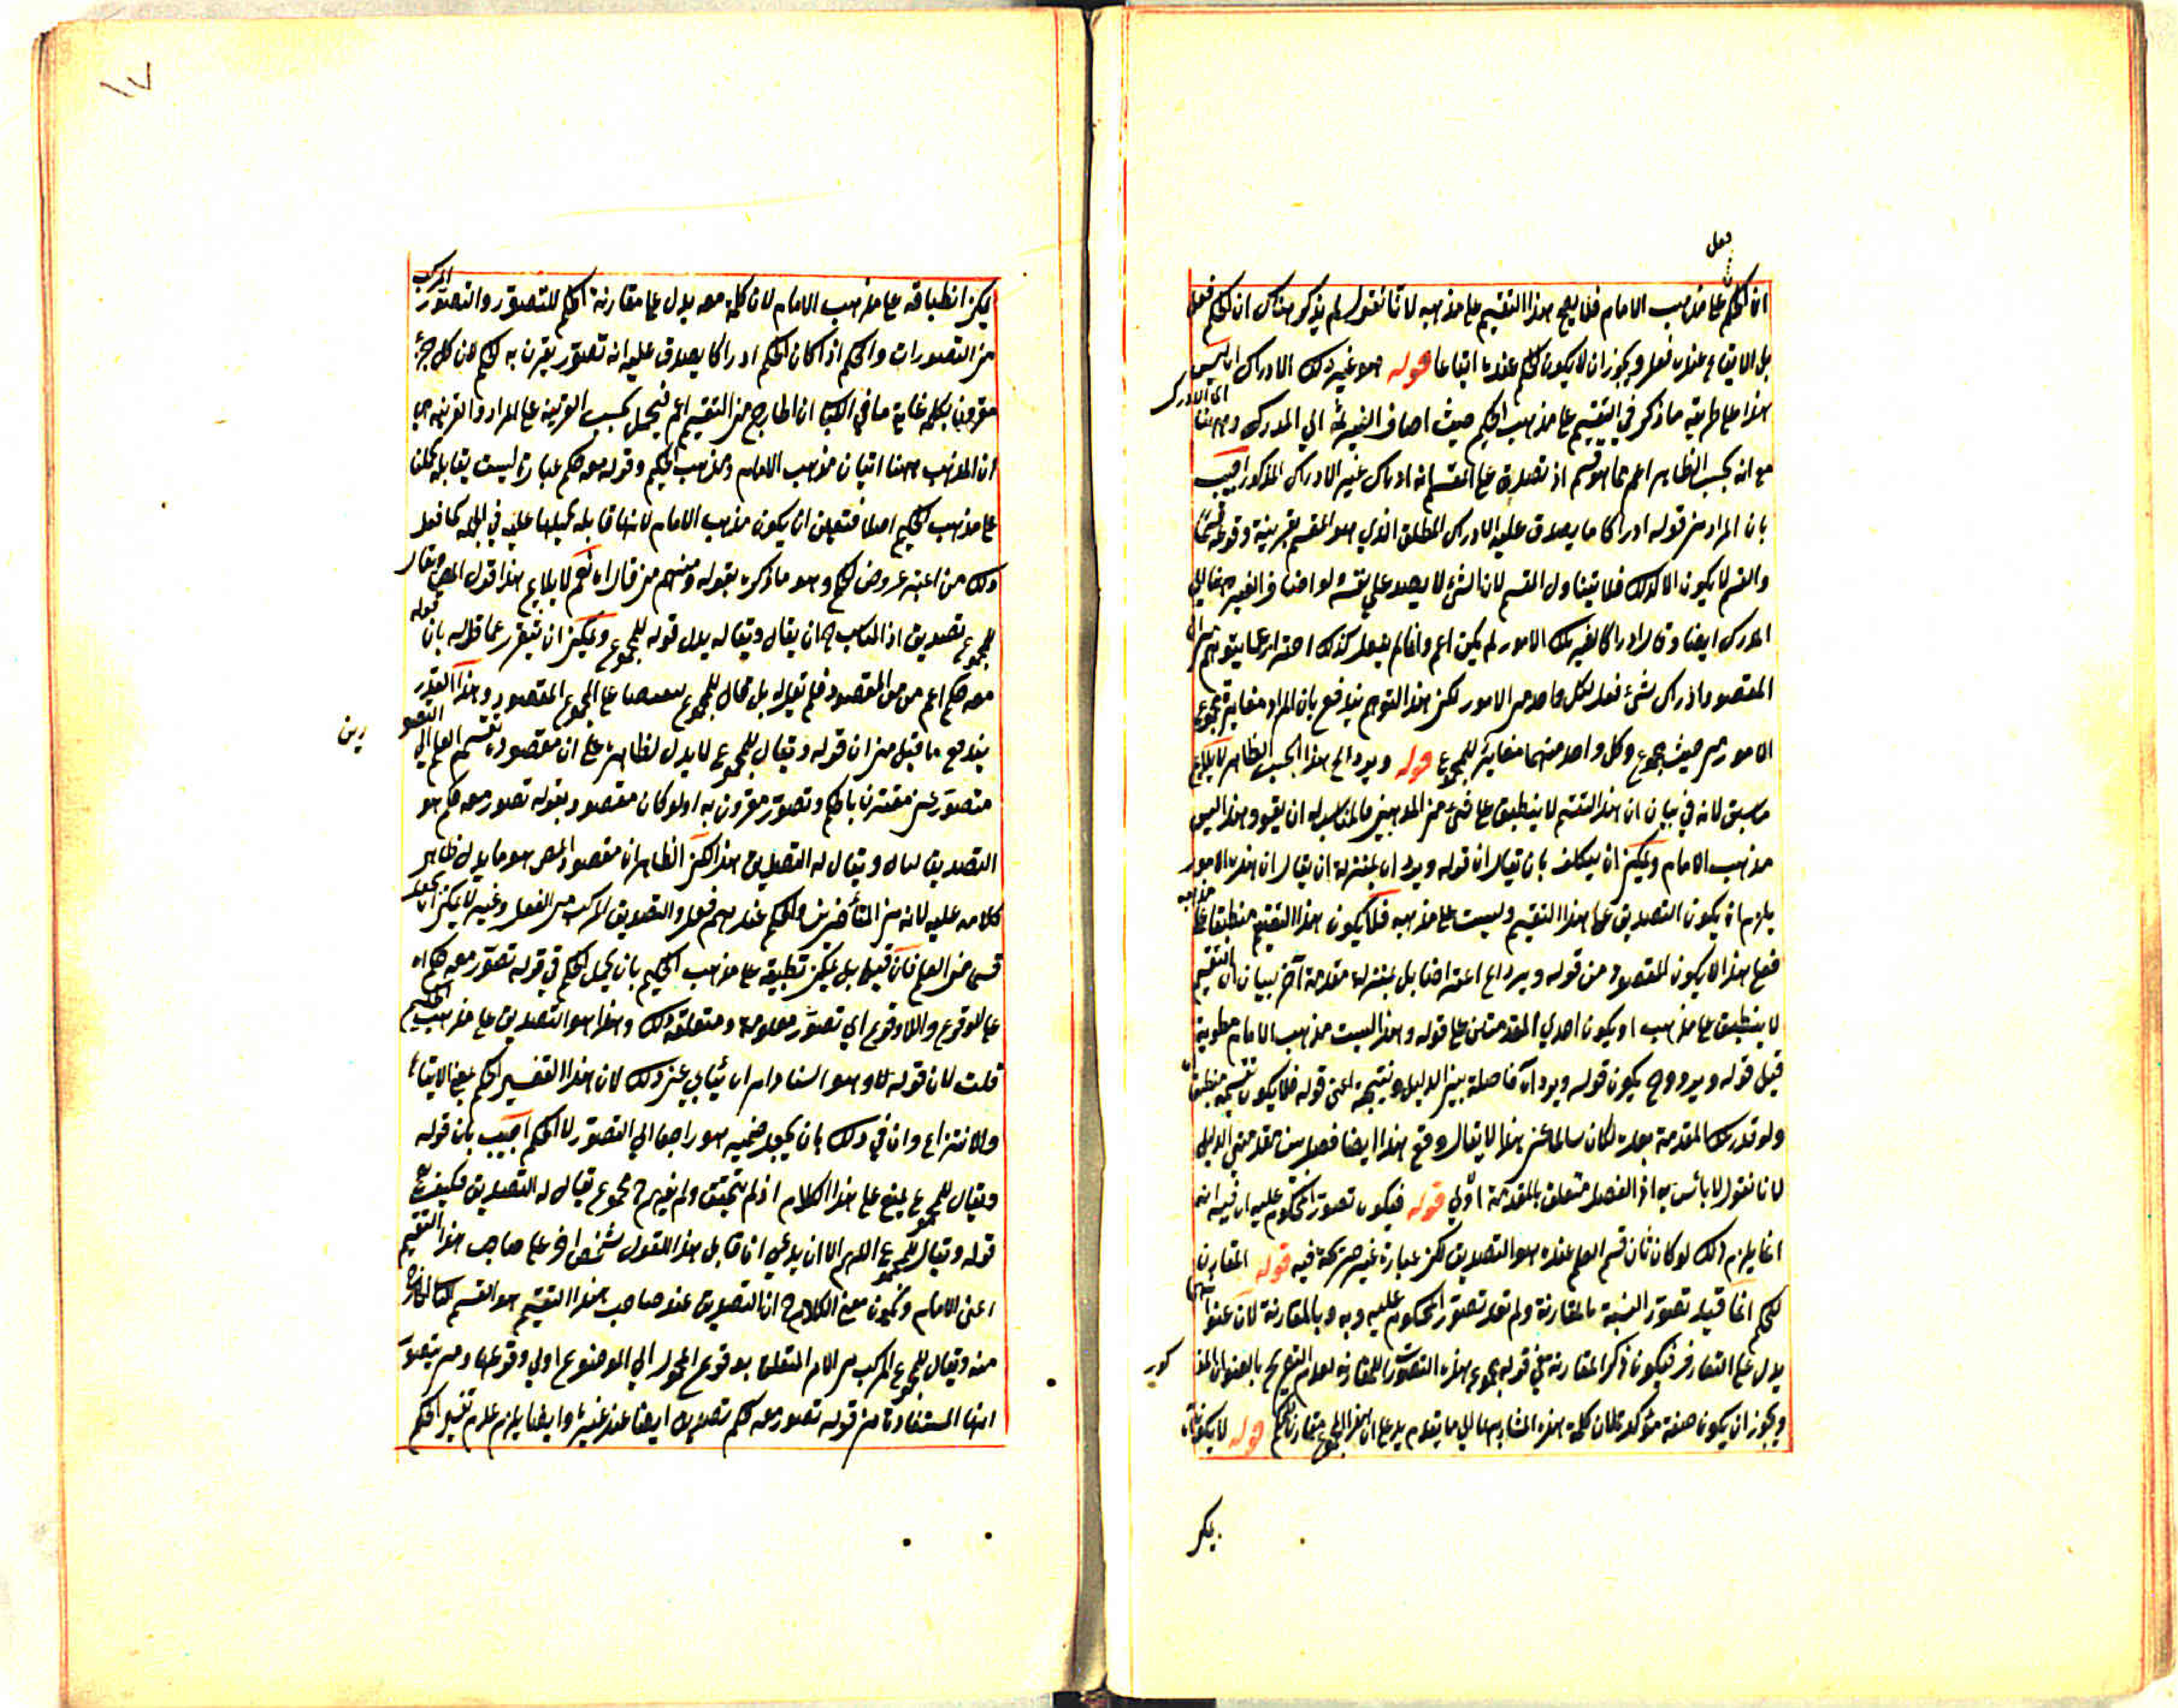 فعل
ان الحكم على مذهب الامام فلا يصح هذا التقسيم على مذهبه لانا نقول لم يذكر هناك ان الحكم فعل
بل الايقاع عنده فعل ويجوز ان لا يكون الحكم عنده ايقاعا قوله هو غير ذلك الادراك ان ليس
هذا على طريقة ما ذكر في التقسيم على مذهب الحكيم حيث اضاف الغيرية الى المدرك وههنا الى الادراك
مع انه بحسب الظاهر اعم مما هو قسم اذ تصدق على المقسم انه ادراك غير الادراك المذكور اجيب
بان المراد من قوله ادراكا ما يصدق عليه الادراك المطلق الذي هو المقسم بقرينة وقوعه قسما
والقسم لا يكون الا كذلك فلا يتناول المقسم لان الشئ لا يصدق على نفسه ولو اضاف الغير ههنا الى
المدرك ايضا وقال ادراكا لغير تلك الامور لم يكن اعم وانما لم يفعل كذلك احترازا عما يتوهم من ان
المقصود ادراك شئ فعل لكل واحد من الامور لكن هذا التوهم يندفع بان المراد مغايرة مجموع
الامور من حيث المجموع وكل واحد منهما مغاير للمجموع قوله ويرد الى هذا بحسب الظاهر لا يلائم
ما سبق لانه في بيان ان هذا التقسيم لا ينطبق على شئ من المذهبين فالمناسب له ان يقول وهذا ليس
مذهب الامام ويمكن ان يتكلف بان يقال ان قوله ويرد ان بمنزلة ان يقال ان هذه الامور
يلزم ان يكون التصديق على هذا التقسيم وليست على مذهبه فلا يكون هذا التقسيم منطبقا على مذهبه
فعلى هذا لا يكون المقصود من قوله ويرد اعتراضا بل بمنزلة مقدمة آخر بيان ان التقسيم
لا ينطبق على مذهب او يكون احدى المقدمتين على قوله وهذا ليست مذهب الامام مطوية
قبل قوله ويرد وح يكون قوله ويرد ان فاصلة بين الدليل ونتيجة اعنى قوله فلا يكون تقسيمه منطبقا
ولو قدر تلك المقدمة بعده لكان سالما عن هذا لا يقال وقع هذا ايضا فصل بين مقدمتي الدليل
لانا نقول لا بأس به اذ الفصل متعلق بالمقدمة الاولى قوله فيكون تصور المحكوم عليه ان فيه انه
انما يلزم ذلك لو كان ثان قسم العلم عنده هو التصديق لكن عبارة غير صريحة فيه قوله المقارن
للحكم انما قيد تصور النسبة بالمقارنة ولم يقيد تصور المحكوم عليه وبه وبالمقارنة لان عنوانها
يدل على التقارن فيكون ذكر المقارنة في قوله مجموع هذه التصورات المقارنة لعدم التصريح بالعنوان المذكور
ويجوز ان يكون صفة مؤكدة لان كلمة هذه المشار بها الى ما يتقدم يدل على ان هذا المجموع مقارن للحكم قوله لا يكون ثان
يمكن
١٧
يمكن انطباقه على مذهب الامام لان كلمة معه يدل على مقارنة الحكم للتصور والتصور المركب
من التصورات والحكم اذا كان الحكم ادراكا يصدق عليه انه تصور يقترن به الحكم لان كل جزء
مقرون بكله غاية ما في الباب ان الخارج من التقسيم اعم فيحمل بحسب القرينة على المراد والقرينة هي
ان المذهب ههنا اثنان مذهب الامام ومذهب الحكيم وقوله معه حكم عبارة ليست يقابله حملنا
على مذهب الحكيم اصلا فتعين ان يكون مذهب الامام لانها قابلة لحملها عليه في الجملة كما فعل
ذلك من اعتبر عروض الحكم وهو ما ذكره بقوله ومنهم من قال اه نعم لا يلايم هذا قول المص ويقال
للمجموع تصديق اذ المناسب ح ان يقال ويقال له بدل قوله للمجموع ويمكن ان يتقرر عما قاله بان قوله
معه حكم اعم من المقصود فلم يقل له بل قال للمجموع تنصيصا على المجموع المقصود وهذا القدر
يندفع ما قيل من ان قوله ويقال للمجموع لا يدل لظاهره على ان مقصوده تقسيم العلم الى التصورين
متصور غير مقترن بالحكم وتصور مقرون به اولو كان مقصود بقوله تصور معه حكم هو
التصديق لقال ويقال له التصديق هذا لكن الظاهر ان مقصود المص هو ما يدل ظاهر
كلامه عليه لانه من المتأخرين والحكم عندهم فعل والتصديق المركب من الفعل وغيره لا يمكن ان يجعل
قسما من العلم فان قيل بل يمكن تطبيقه على مذهب الحكيم بان يحمل الحكم في قوله تصور معه حكم اه
على الوقوع واللاوقوع اي تصور معلومه ومتعلقه ذلك وهذا هو التصديق على مذهب الحكيم
قلت لان قوله للاوهو اسناد امر اه يأبى عن ذلك لان هذا التفسير الحكم بمعنى الايقاع
والانتزاع وان في ذلك بان يجعل ضمير هو راجعا الى التصور لا الحكم اجيب بان قوله
ويقال للمجموع يمنع على هذا الكلام اذ لم يتحقق ولم يفهم ح مجموع يقال له التصديق فكيف يصح
قوله ويقال للمجموع اللهم الا ان يدعى ان قابل هذا القول شخص اخر على صاحب هذا التقسيم
اعنى الامام ويكون معنى الكلام ح ان التصديق عند صاحب هذا التقسيم هو القسم الثاني الخارج
منه ويقال للمجموع المركب من الامر المتعلق بوقوع المحمول الى الموضوع اولى وقوعها ومن تصور
انها المستفادة من قوله تصور معه حكم تصديق ايضا عند غيره وايضا يلزم عدم تفسير الحكم